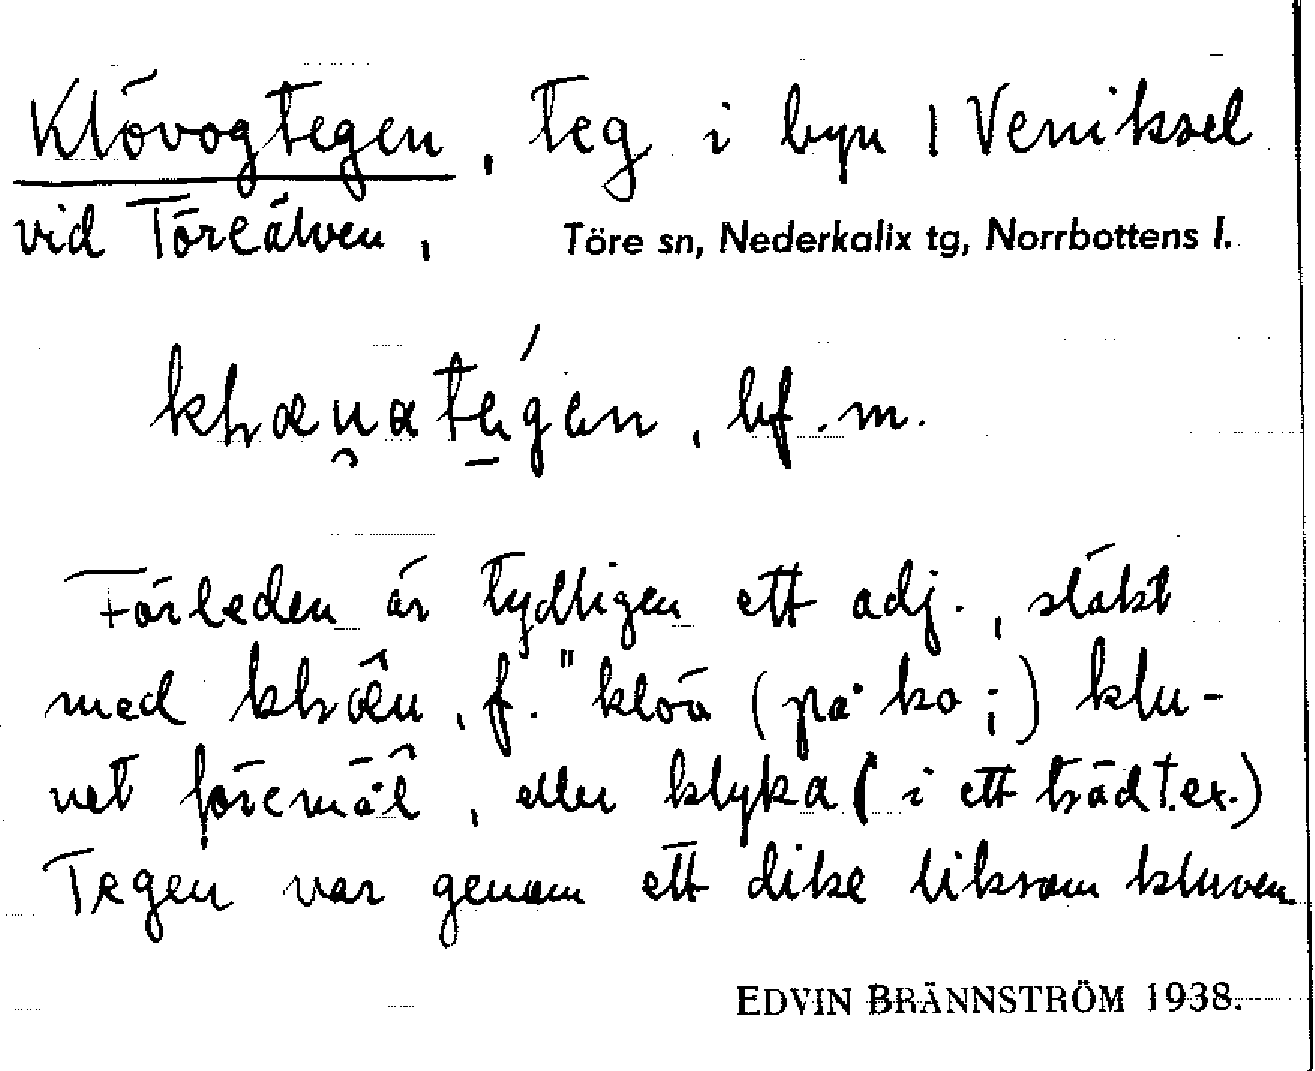 Klövogtegen, teg i byn 1 Veniksel
vid Töreälven,
Töre sn, Nederkalix tg, Norrbottens l.
bf. m.
Förleden är tydligen ett adj., släkt
med f. "klöv (på ko;) klu-
vet föremål, eller klyka (i ett träd t.ex.)
Tegen var genom ett dike liksom kluven
EDVIN BRÄNNSTRÖM 1938.